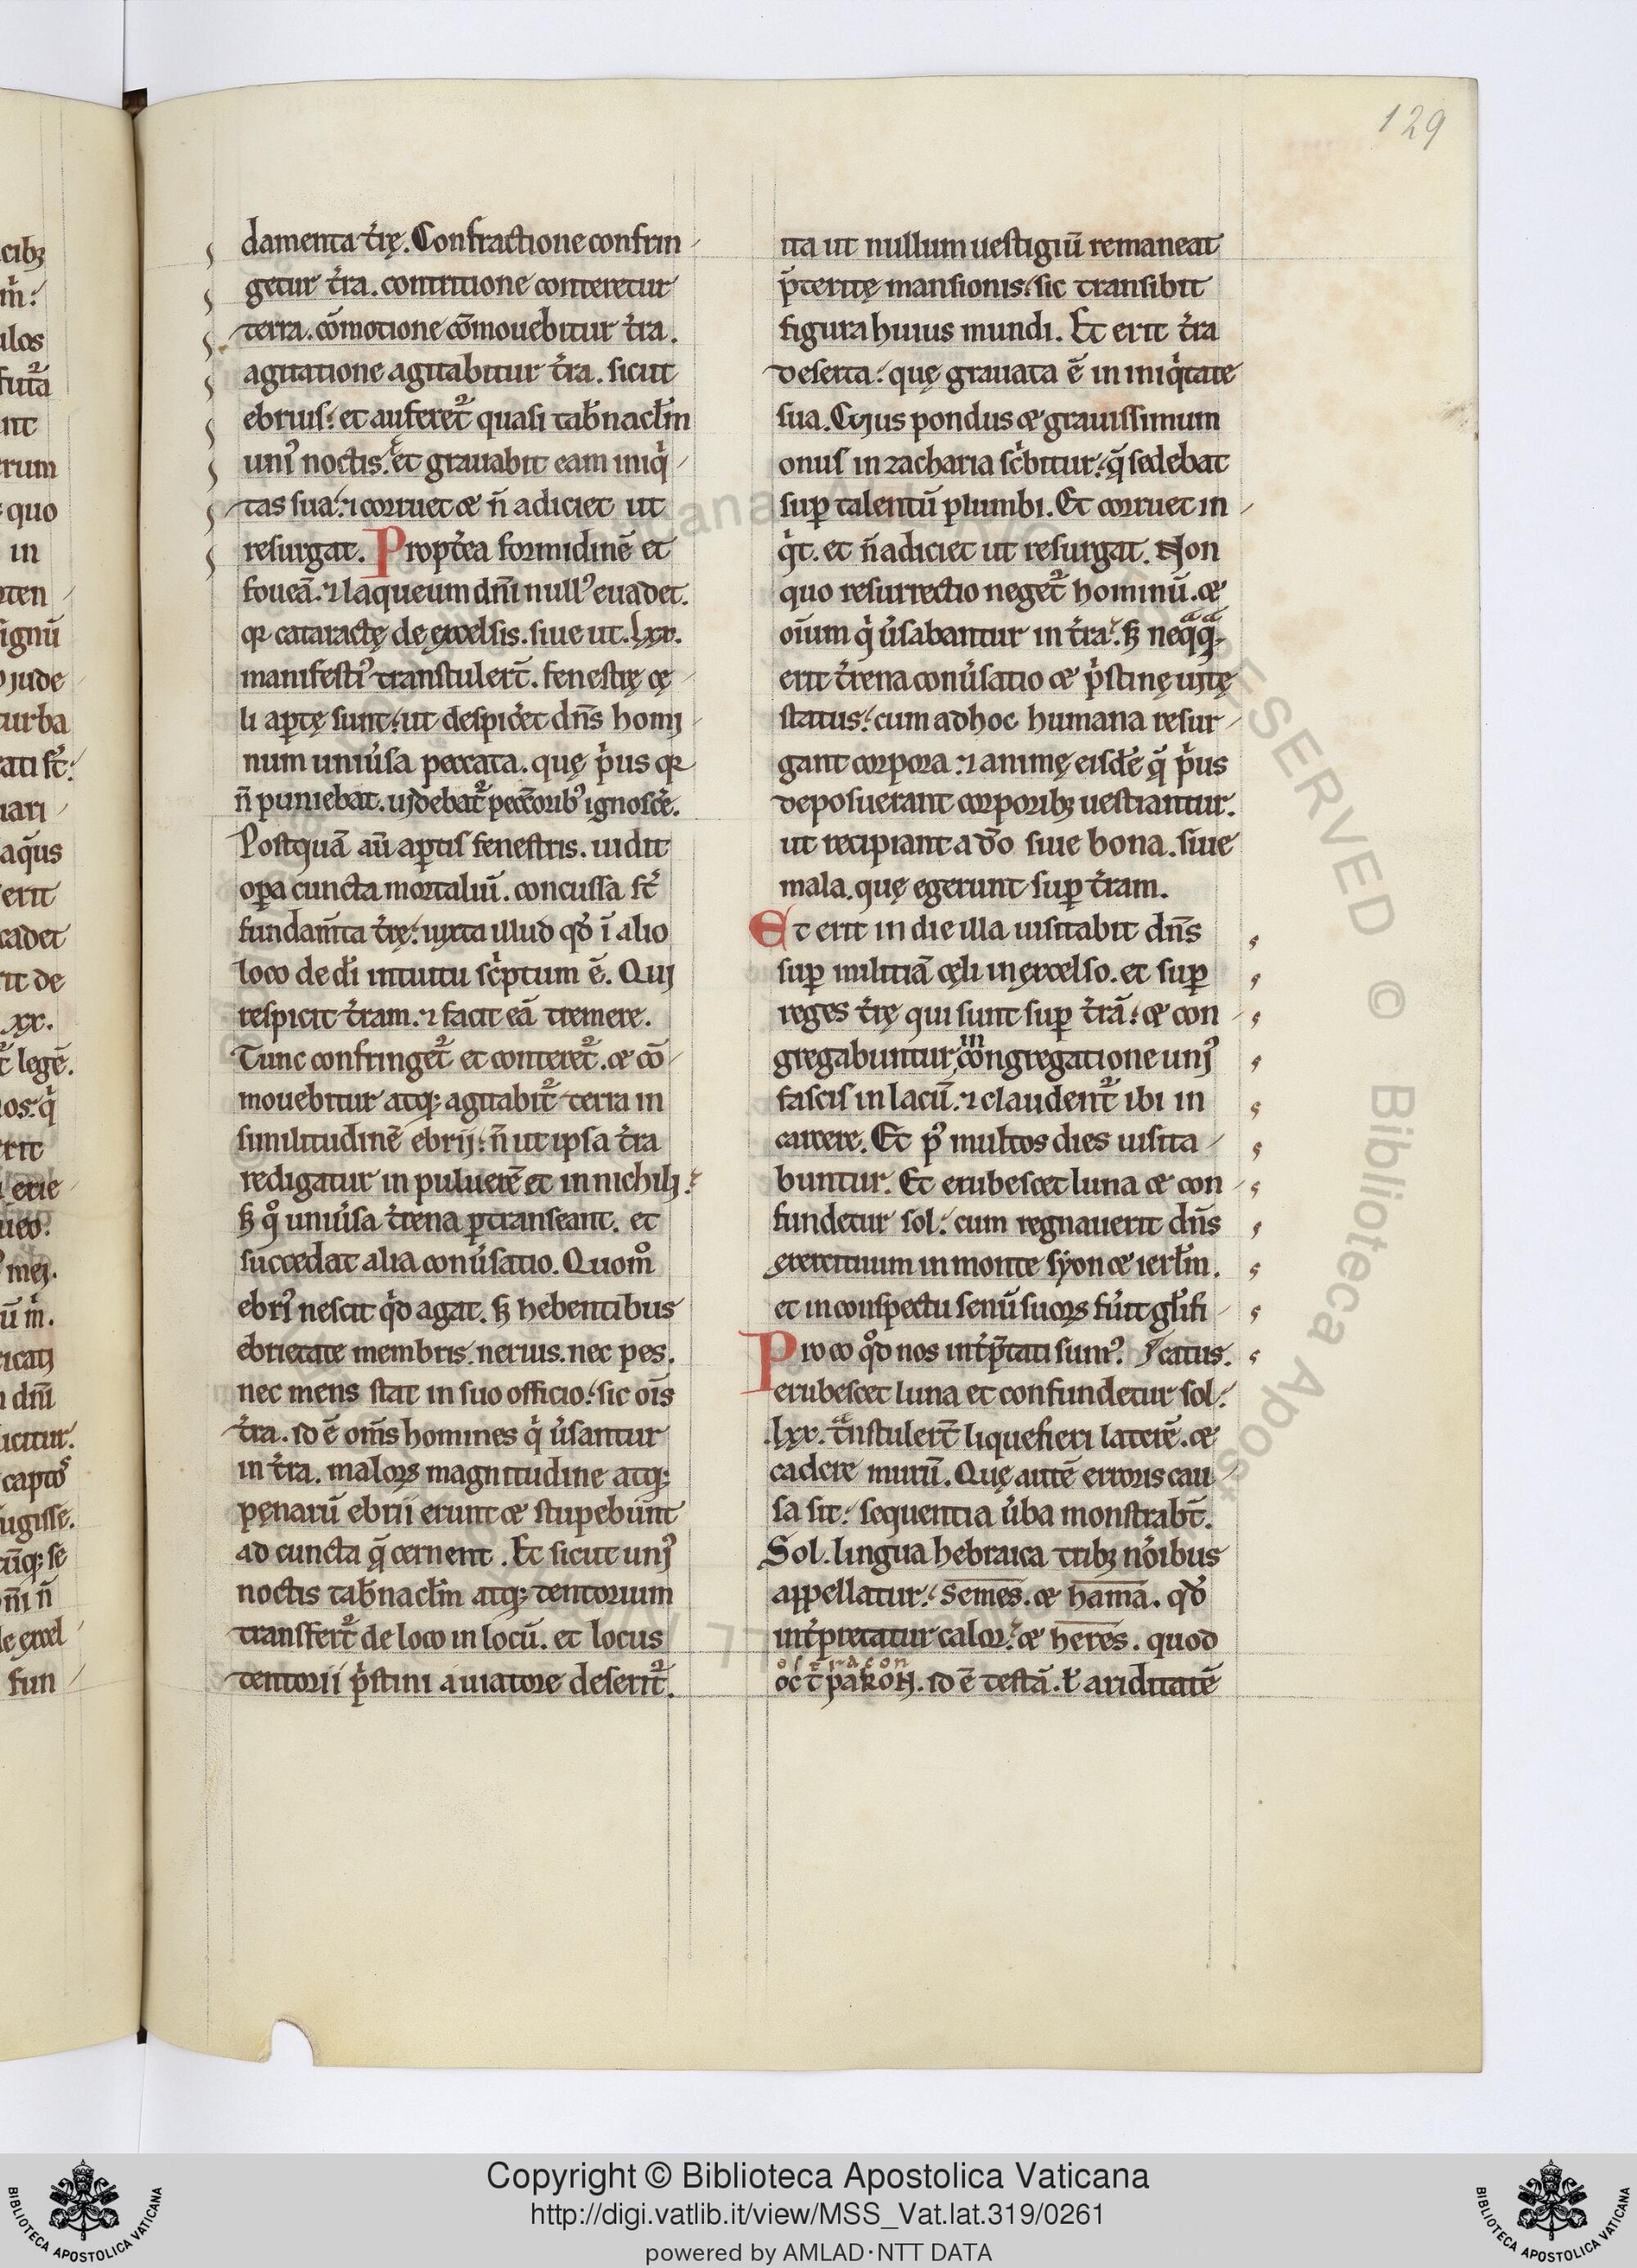 129
damenta t̓rę. Confractione confrin
getur t̓ra. contritione conteretur
terra. cōmotione cōmouebitur t̓ra.
agitatione agitabitur t̓ra. sicut
ebrius. et auferet᷑ quasi tab̓nacl̓m
uni᾽ noctis. et grauabit eam iniq̓
tas sua. ⁊ corruet & n̄ adiciet ut
resurgat. Propt̓ea formidinē et
foueā. ⁊ laqueum dn̄i null᾽ euadet.
qr cataractę de excelsis. siue ut .lxx.
manifesti᾽ transtuler̄t. fenestrę cę
li aꝑtę sunt. ut despic̓et dn̄s homi
num uniu̓sa peccata. quę p̓us qr
n̄ puniebat. uidebat᷑ pecc̄orib᾽ ignosc̓e.
Postquā aū aꝑtis fenestris. uidit
oꝑa cuncta mortaliū. concussa st̓
fundam̄ta t̓rę. iuxta illud qd̓ ī alio
loco de dī intuitu sc̓ptum ē. Qui
respicit t̓ram. ⁊ facit eā tremere.
Tunc confringet᷑ et conteret᷑. & cō
mouebitur atq; agitabit᷑ terra in
similitudinē ebrij. n̄ ut ipsa t̓ra
redigatur in puluerē et in nichili.
sꝫ qͦ uniu̓sa t̓rena ꝑtranseant. et
succedat alia conu̓satio. Quom̊
ebri᾽ nescit q̓d agat. sꝫ hebentibus
ebrietate membris. neruis. nec pes.
nec mens stat in suo officio. sic oīs
t̓ra. id ē om̄s homines q̓ u̓santur
in t̓ra. maloꝝ magnitudine atq;
pęnarū ebrii erunt & stupebunt
ad cuncta q̄ cernent. Et sicut uni᾽
noctis tab̓nacl̓m atq; tentorium
transfert᷑ de loco in locū. et locus
tentorii p̓stini a uiatore deserit᷑.
ita ut nullum uestigiū remaneat
p̄teritę mansionis. sic transibit
figura huius mundi. Et erit t̓ra
deserta. quę grauata ē in iniq̓tate
sua. Cuius pondus & grauissimum
onus in zacharia sc̓bitur. q̄ sedebat
suꝑ talentū plumbi. Et corruet in
q̓t. et n̄ adiciet ut resurgat. Non
quo resurrectio neget᷑ hominū. &
oīum q̓ u̓sabantur in t̓ra. sꝫ neqͣqͣ
erit t̓rena conu̓satio & p̓stinę uitę
status. cum adhoc humana resur
gant corpora. ⁊ animę eisdē q̄ p̓us
deposuerant corporibꝫ uestiantur.
ut recipiant a dō siue bona. siue
mala. quę egerunt suꝑ t̓ram.
Et erit in die illa uisitabit dn̄s
suꝑ militiā cęli in excelso. et suꝑ
reges t̓rę qui sunt suꝑ t̓rā. & con
gregabuntur in congregatione uni᾽
fascis in lacū. ⁊ claudent᷑ ibi in
carcere. Et p᾽ multos dies uisita
buntur. Et erubescet luna & con
fundetur sol. cum regnauerit dn̄s
exercituum in monte syon & ierl̓m.
et in conspectu senū suoꝝ fu̓it gl̓ifi
catus.
Pro eo qͦd nos int̓p̄tati sum᾽.
erubescet luna et confundetur sol.
.lxx. tͣnstuler̄t liquefieri laterē. &
cadere murū. Quę autē erroris cau
sa sit. sequentia u̓ba monstrab̄t.
Sol. lingua hebraica tribꝫ nōibus
appellatur. semes. & hama. qd̓
int̓pretatur calor. & heres. quod
ostracon
oc̄tpakon. id ē testā. ł ariditatē
Copyright © Biblioteca Apostolica Vaticana
http://digi.vatlib.it/view/MSS_Vat.lat.319/0261
powered by AMLAD·NTT DATA
BIBLIOTECA APOSTOLICA VATICANA
BIBLIOTECA APOSTOLICA VATICANA